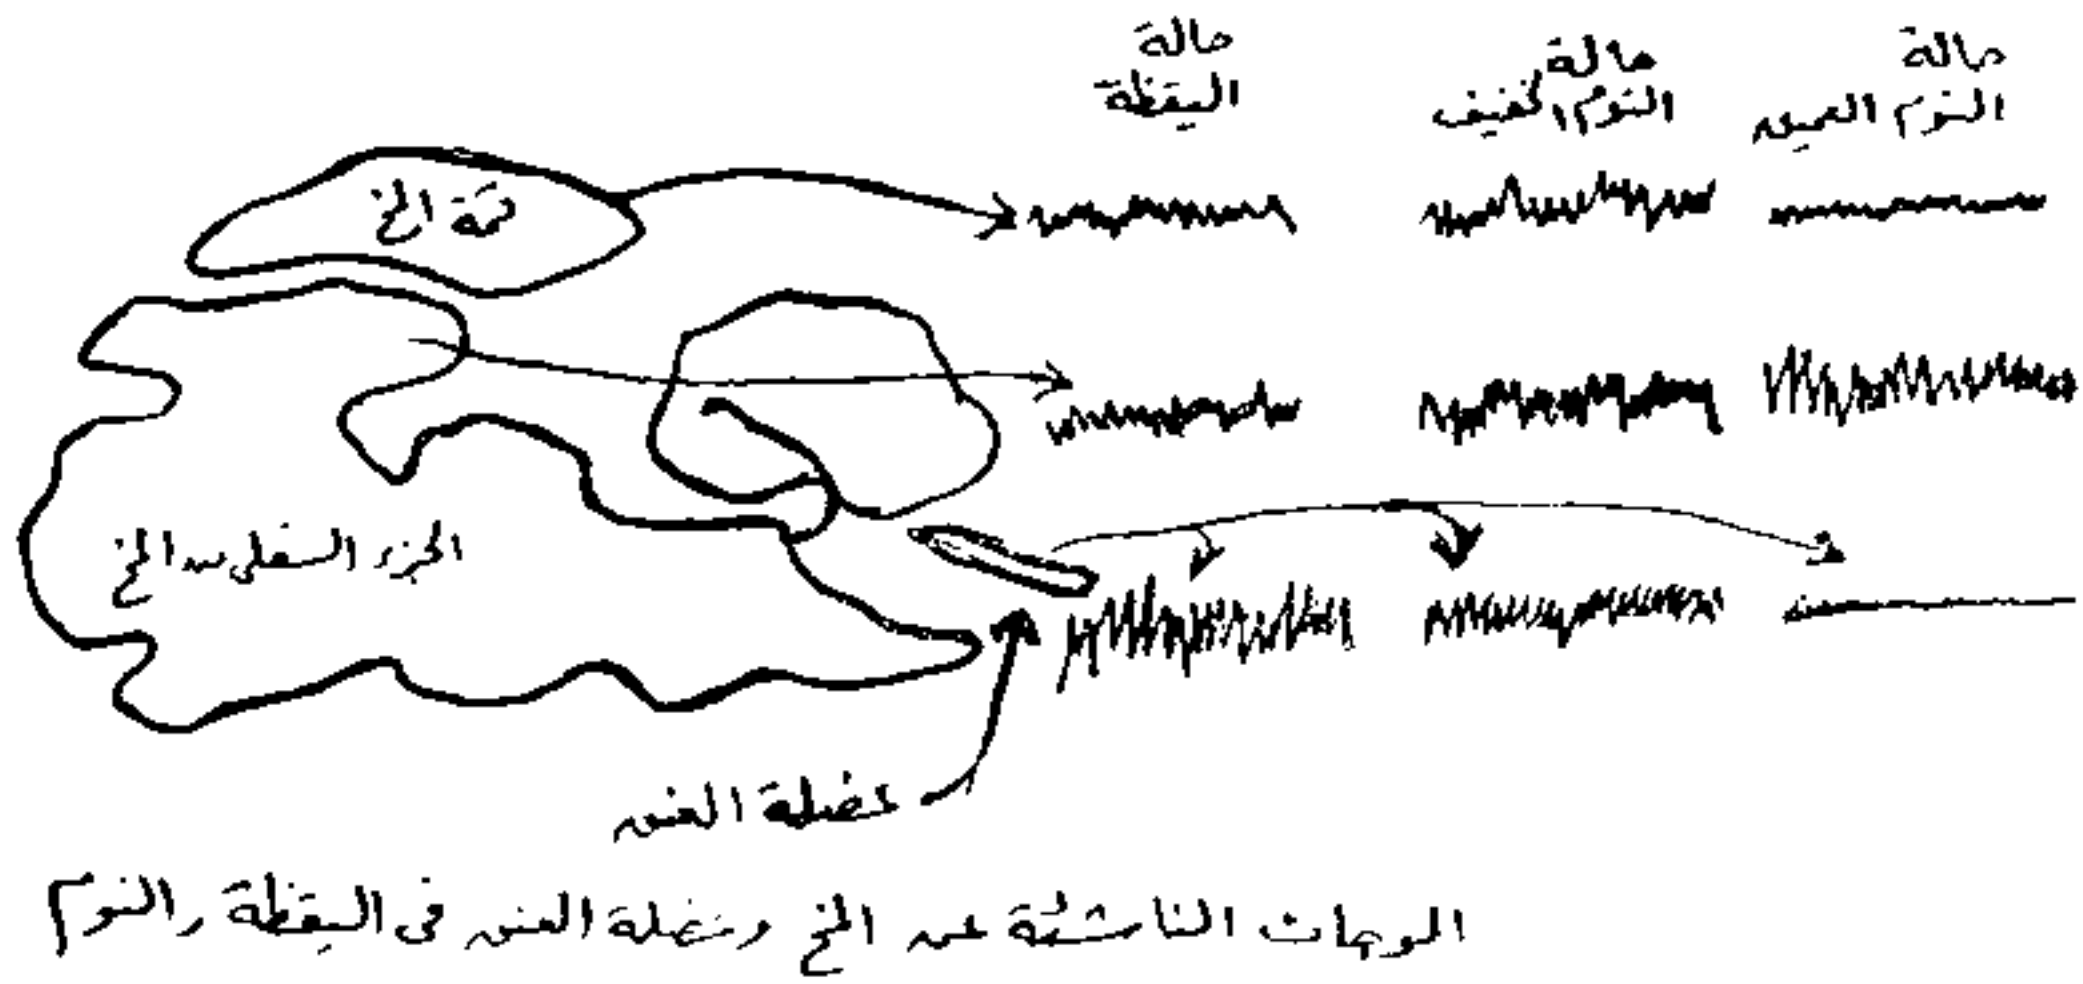 حالة
اليقظة
حالة
النوم الخفيف
حالة
النوم العميق
قمة المخ
الجزء السفلى من المخ
عضلة العنق
الموجات الناشئة عن المخ وعضلة العنق فى اليقظة والنوم